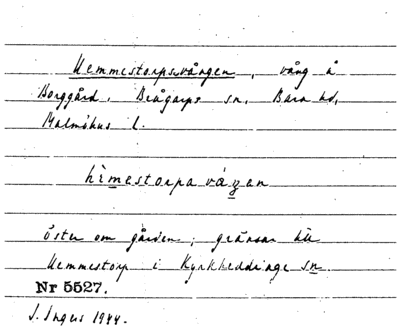 Hemmestorpsvången, vång å
Borggård, Brågarps sn, Bara hd,
Malmöhus l.
hèmestorpa váŋen
öster om gården; gränsar till
Hemmestorp i Kyrkheddinge sn.
Nr 5527.
I. Ingers 1944.